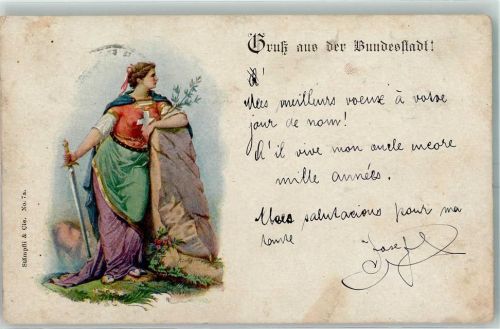 Gruß aus der Bundesstadt!
A'
Mes meilleurs voeux à votre
jour de nom!
A'il vive mon oncle encore
mille années.
Mes salutacious pour ma
tante
Josef
Stämpfli & Cie. No. 7a.